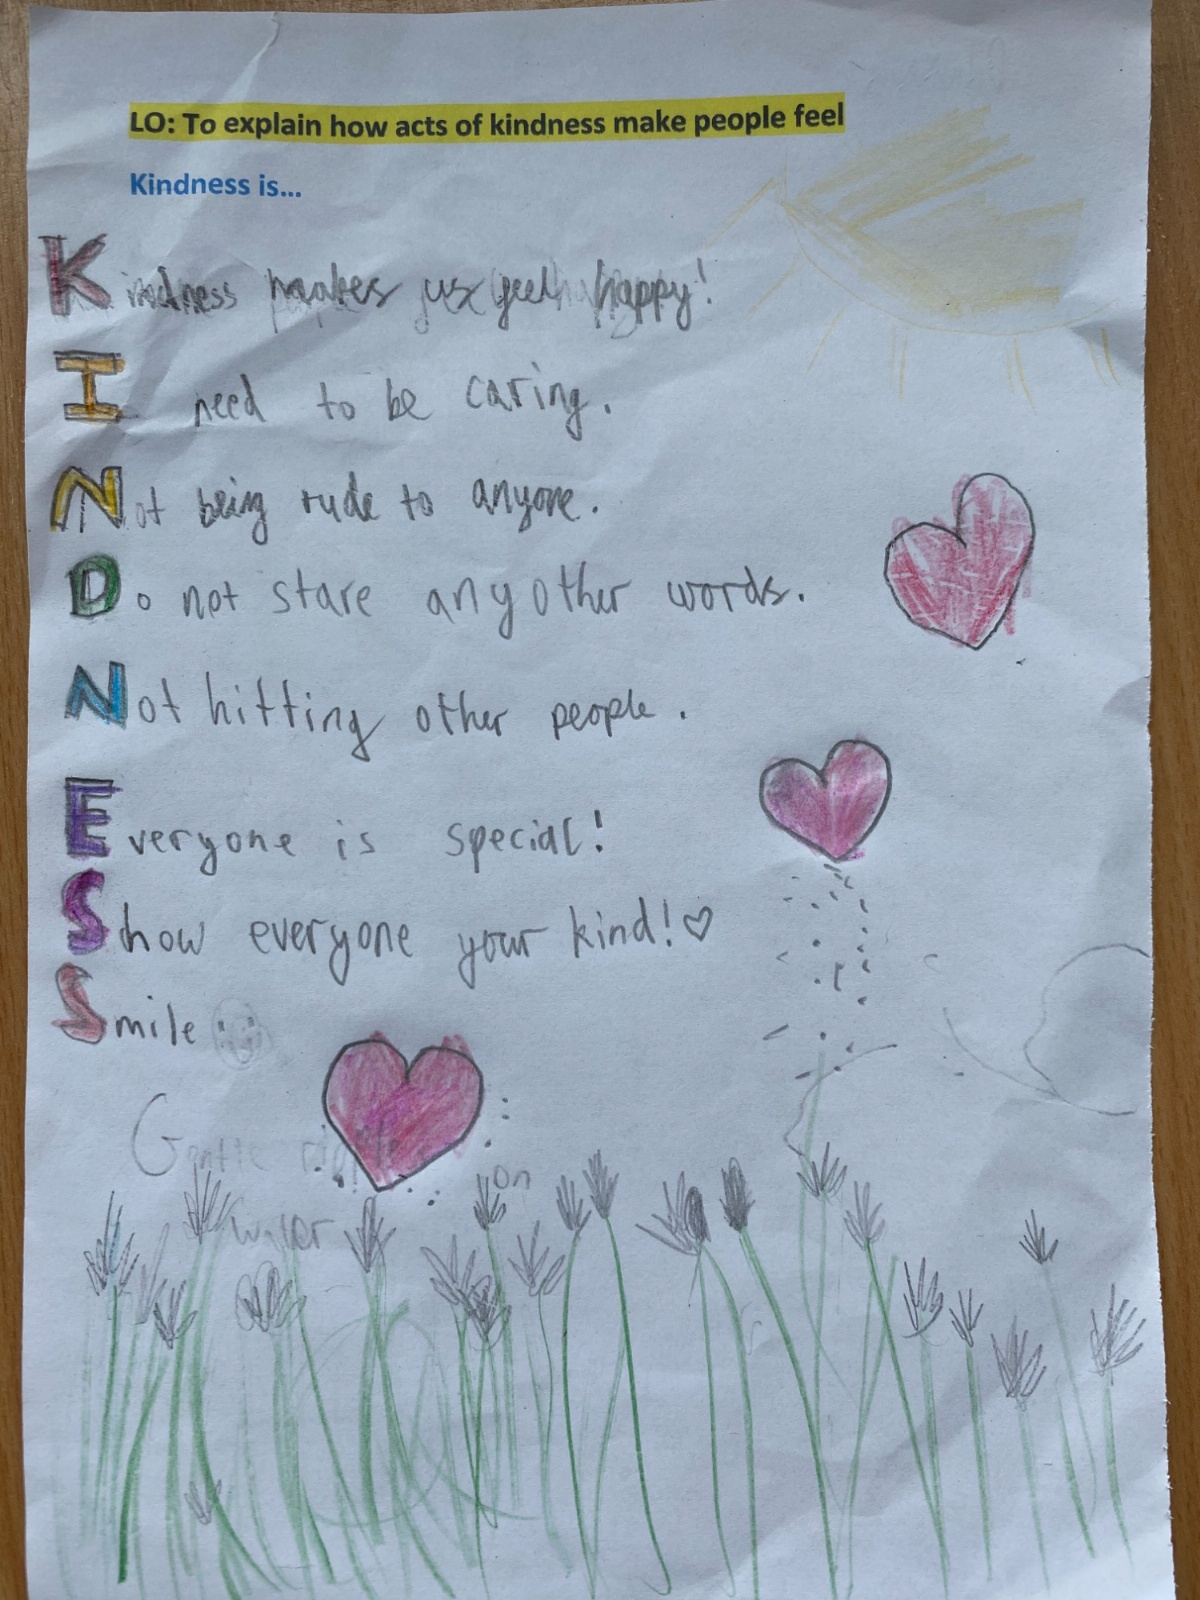 LO: To explain how acts of kindness make people feel
Kindness is...
Kindness makes us feel happy!
I need to be caring.
Not being rude to anyone.
Do not stare any other words.
Not hitting other people.
Everyone is special!
Show everyone your kind!♡
Smile
Gentle on
water